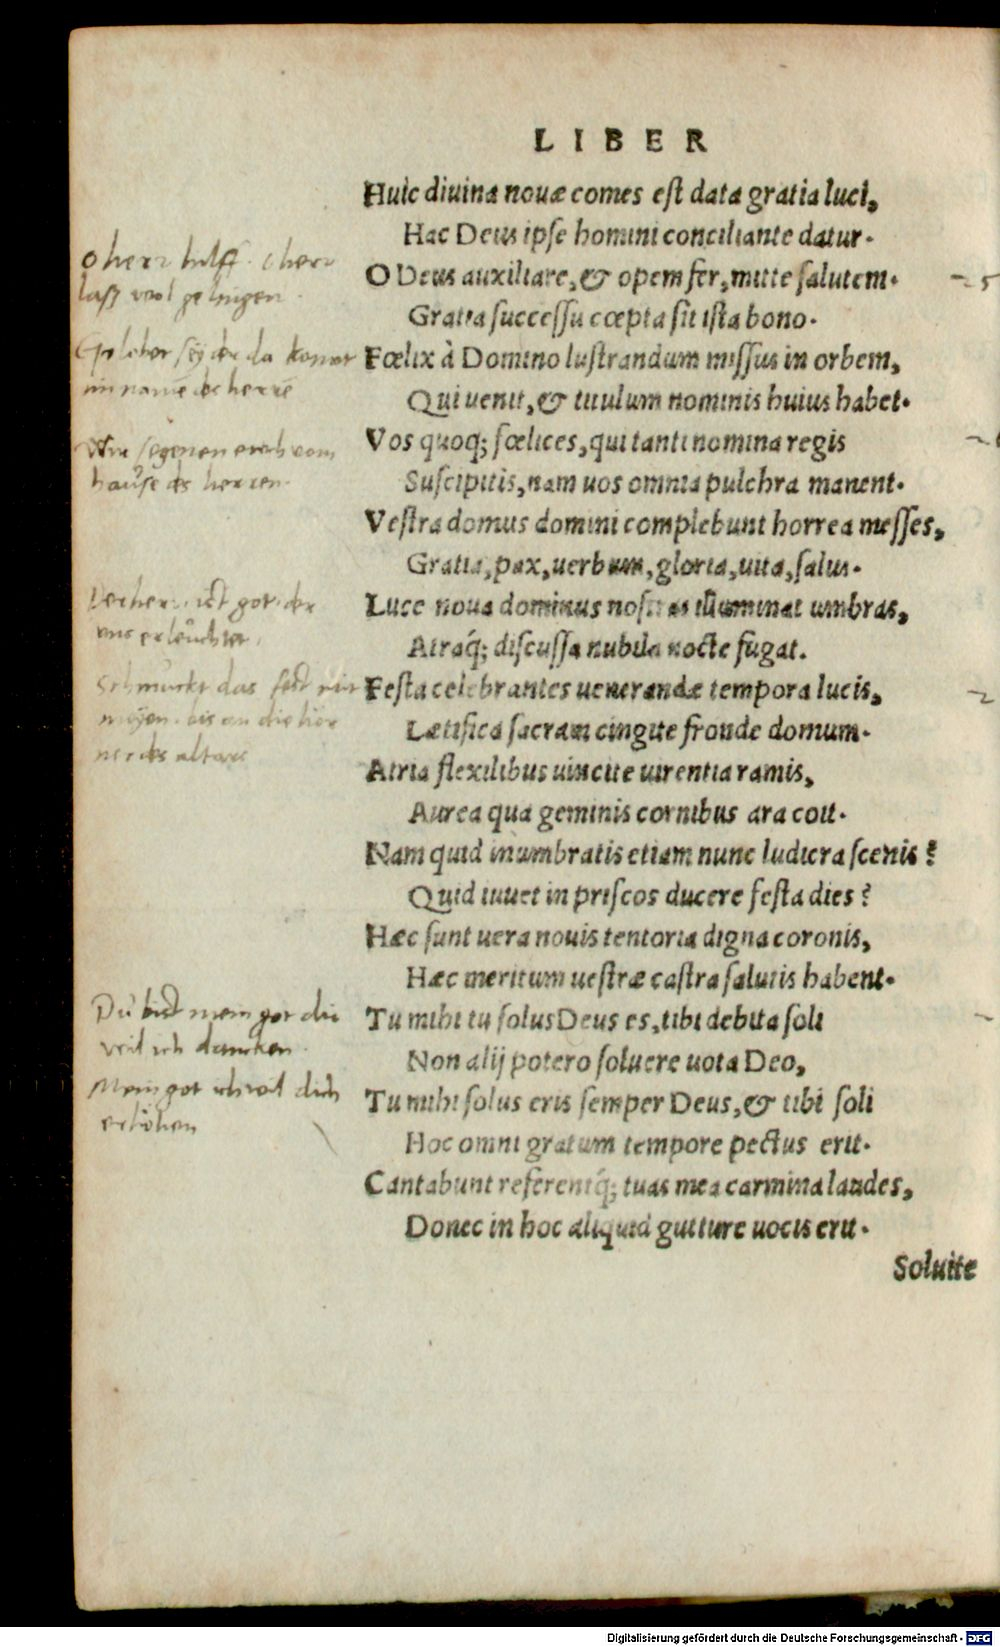 LIBER
Huic diuina nouæ comes est data gratia luci,
Hac Deus ipse homini conciliante datur.
O Deus auxiliare, & opem fer, mitte salutem.
Grata successu cœpta sit ista bono.
Fœlix à Domino lustrandum missus in orbem,
Qui uenit, & titulum nominis huius habet.
Vos quoq; fœlices, qui tanti nomina regis
Suscipitis, nam uos omnia pulchra manent.
Vestra domus domini complebunt horrea messes,
Gratia, pax, uerbum, gloria, uita, salus.
Luce noua dominus nostras illuminat umbras,
Atraq́; discussa nubila nocte fugat.
Festa celebrantes uenerandæ tempora lucis,
Lætifica sacram cingite fronde domum.
Atria flexilibus uincite uirentia ramis,
Aurea qua geminis cornibus ara coit.
Nam quid inumbratis etiam nunc ludicra scenis?
Quid iuuet in priscos ducere festa dies?
Hæc sunt uera nouis tentoria digna coronis,
Hæc meritum uestræ castra salutis habent.
Tu mihi tu solus Deus es, tibi debita soli
Non alij potero soluere uota Deo,
Tu mihi solus eris semper Deus, & tibi soli
Hoc omni gratum tempore pectus erit.
Cantabunt referentq́; tuas mea carmina laudes,
Donec in hoc aliquid gutture uocis erit.
Soluite
o herr hilff. o herr
laß wol gelingen.
Gelobet sey der da komet
im name des herre
Wir segenen euch vom
hause des herren.
Der herr ist got der
uns erleuchtet,
Schmückt das fest mit
meyen. bis an die hör
ner des altars
Du bist mein got die
weil ich dancken.
Mein got ich wil dich
erhöhen
5
2
Digitalisierung gefördert durch die Deutsche Forschungsgemeinschaft - DFG